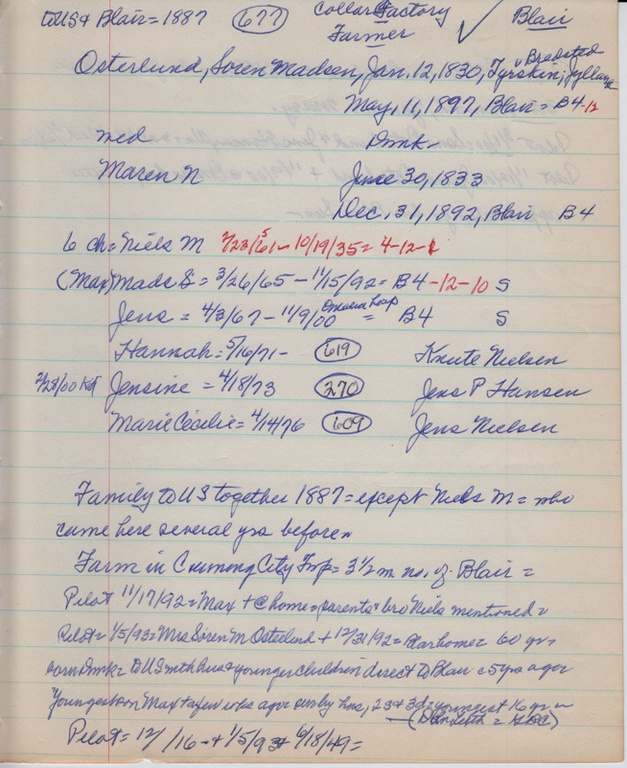 to US & Blair = 1887 (677) Collar Factory Blair
Farmer ✓
Osterlund, Soren Madsen, Jan. 12, 1830, Tyrskin, Bredsted Jylland
May, 11, 1897, Blair = B4-12
med Dmk-
Maren N June 30, 1833
Dec. 31, 1892, Blair B4
6 ch = Niels M 2/23/61 - 10/19/35 = 4-12-1
(Max) Mads S = 3/26/65 - 11/15/92 = B4-12-10 S
Jens = 4/3/67 - 11/9/00 Omaha Hosp = B4 S
Hannah = 5/16/71 - (619) Knute Nielsen
2/28/60 Ket Jensine = 4/18/73 (270) Jens P Hansen
Marie Cecilie = 4/14/76 (609) Jens Nielsen
Family to US together 1887 = except Niels M = who
came here several yrs before
Farm in Cuming City Twp = 3 1/2 m no. of Blair =
Pilot 11/17/92 = Max + @ home = parents & bro Niels mentioned =
Pilot = 1/5/93 = Mrs Sören M Osterlund + 12/31/92 = Blair home = 60 yrs
born Dmk = to US with hus & younger children direct to Blair = 5 yrs ago =
Youngest son Max + a few wks ago = surv by hus, 2 s & 3 d = youngest 16 yr =
(Dan Luth = )
Pilot = 12/ /16 - + 1/5/93 + 6/18/49 =